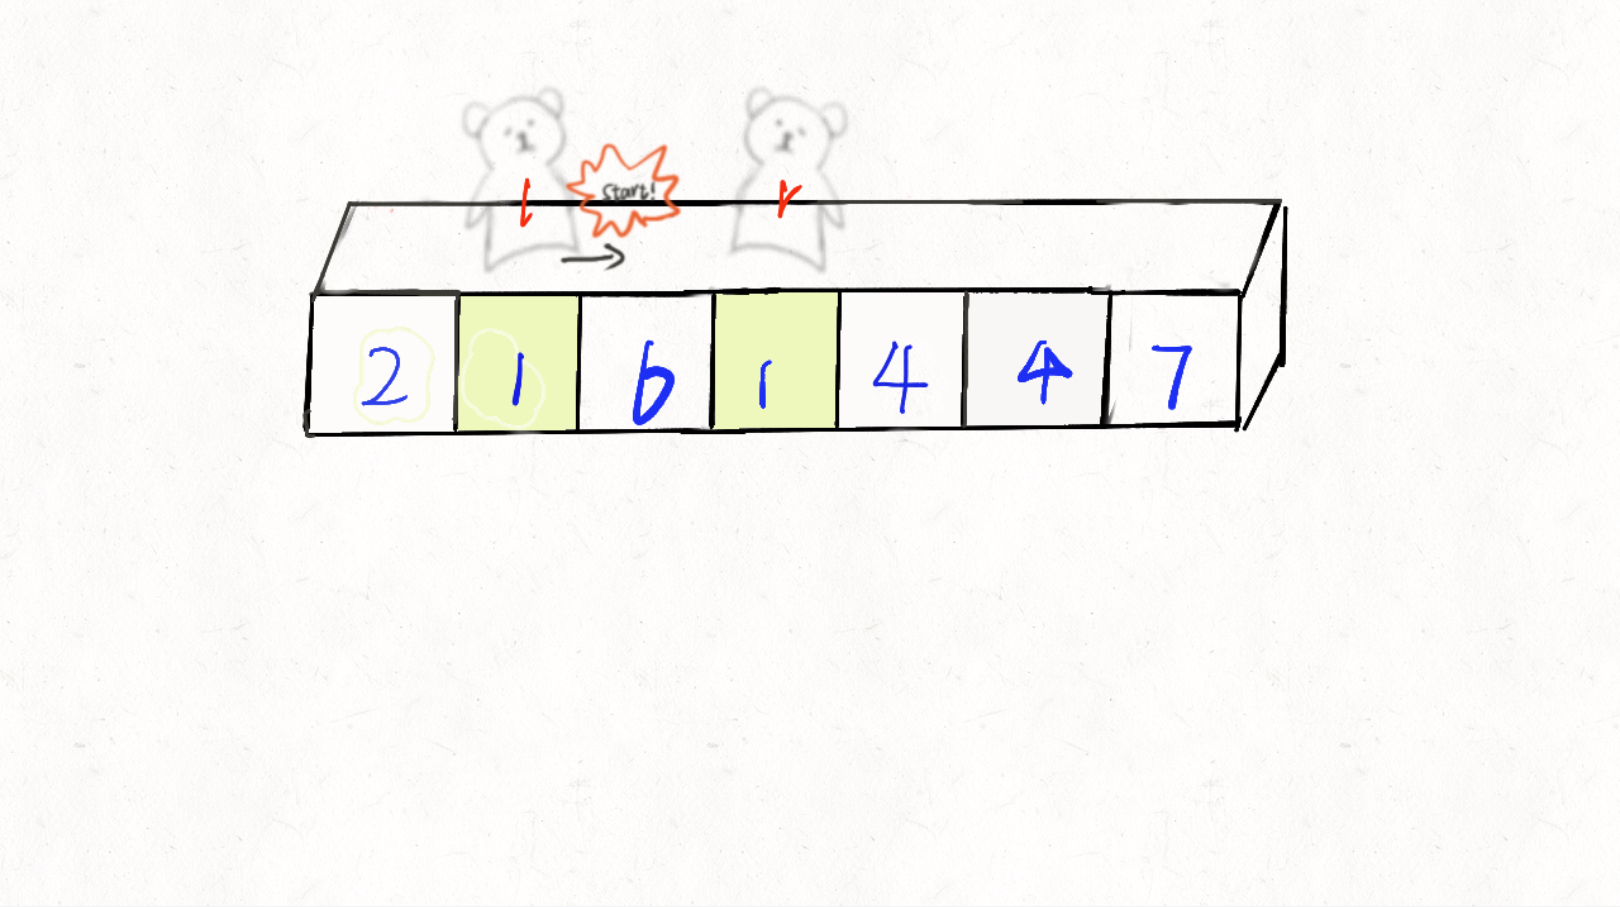 l Start! r
2 1 6 1 4 4 7